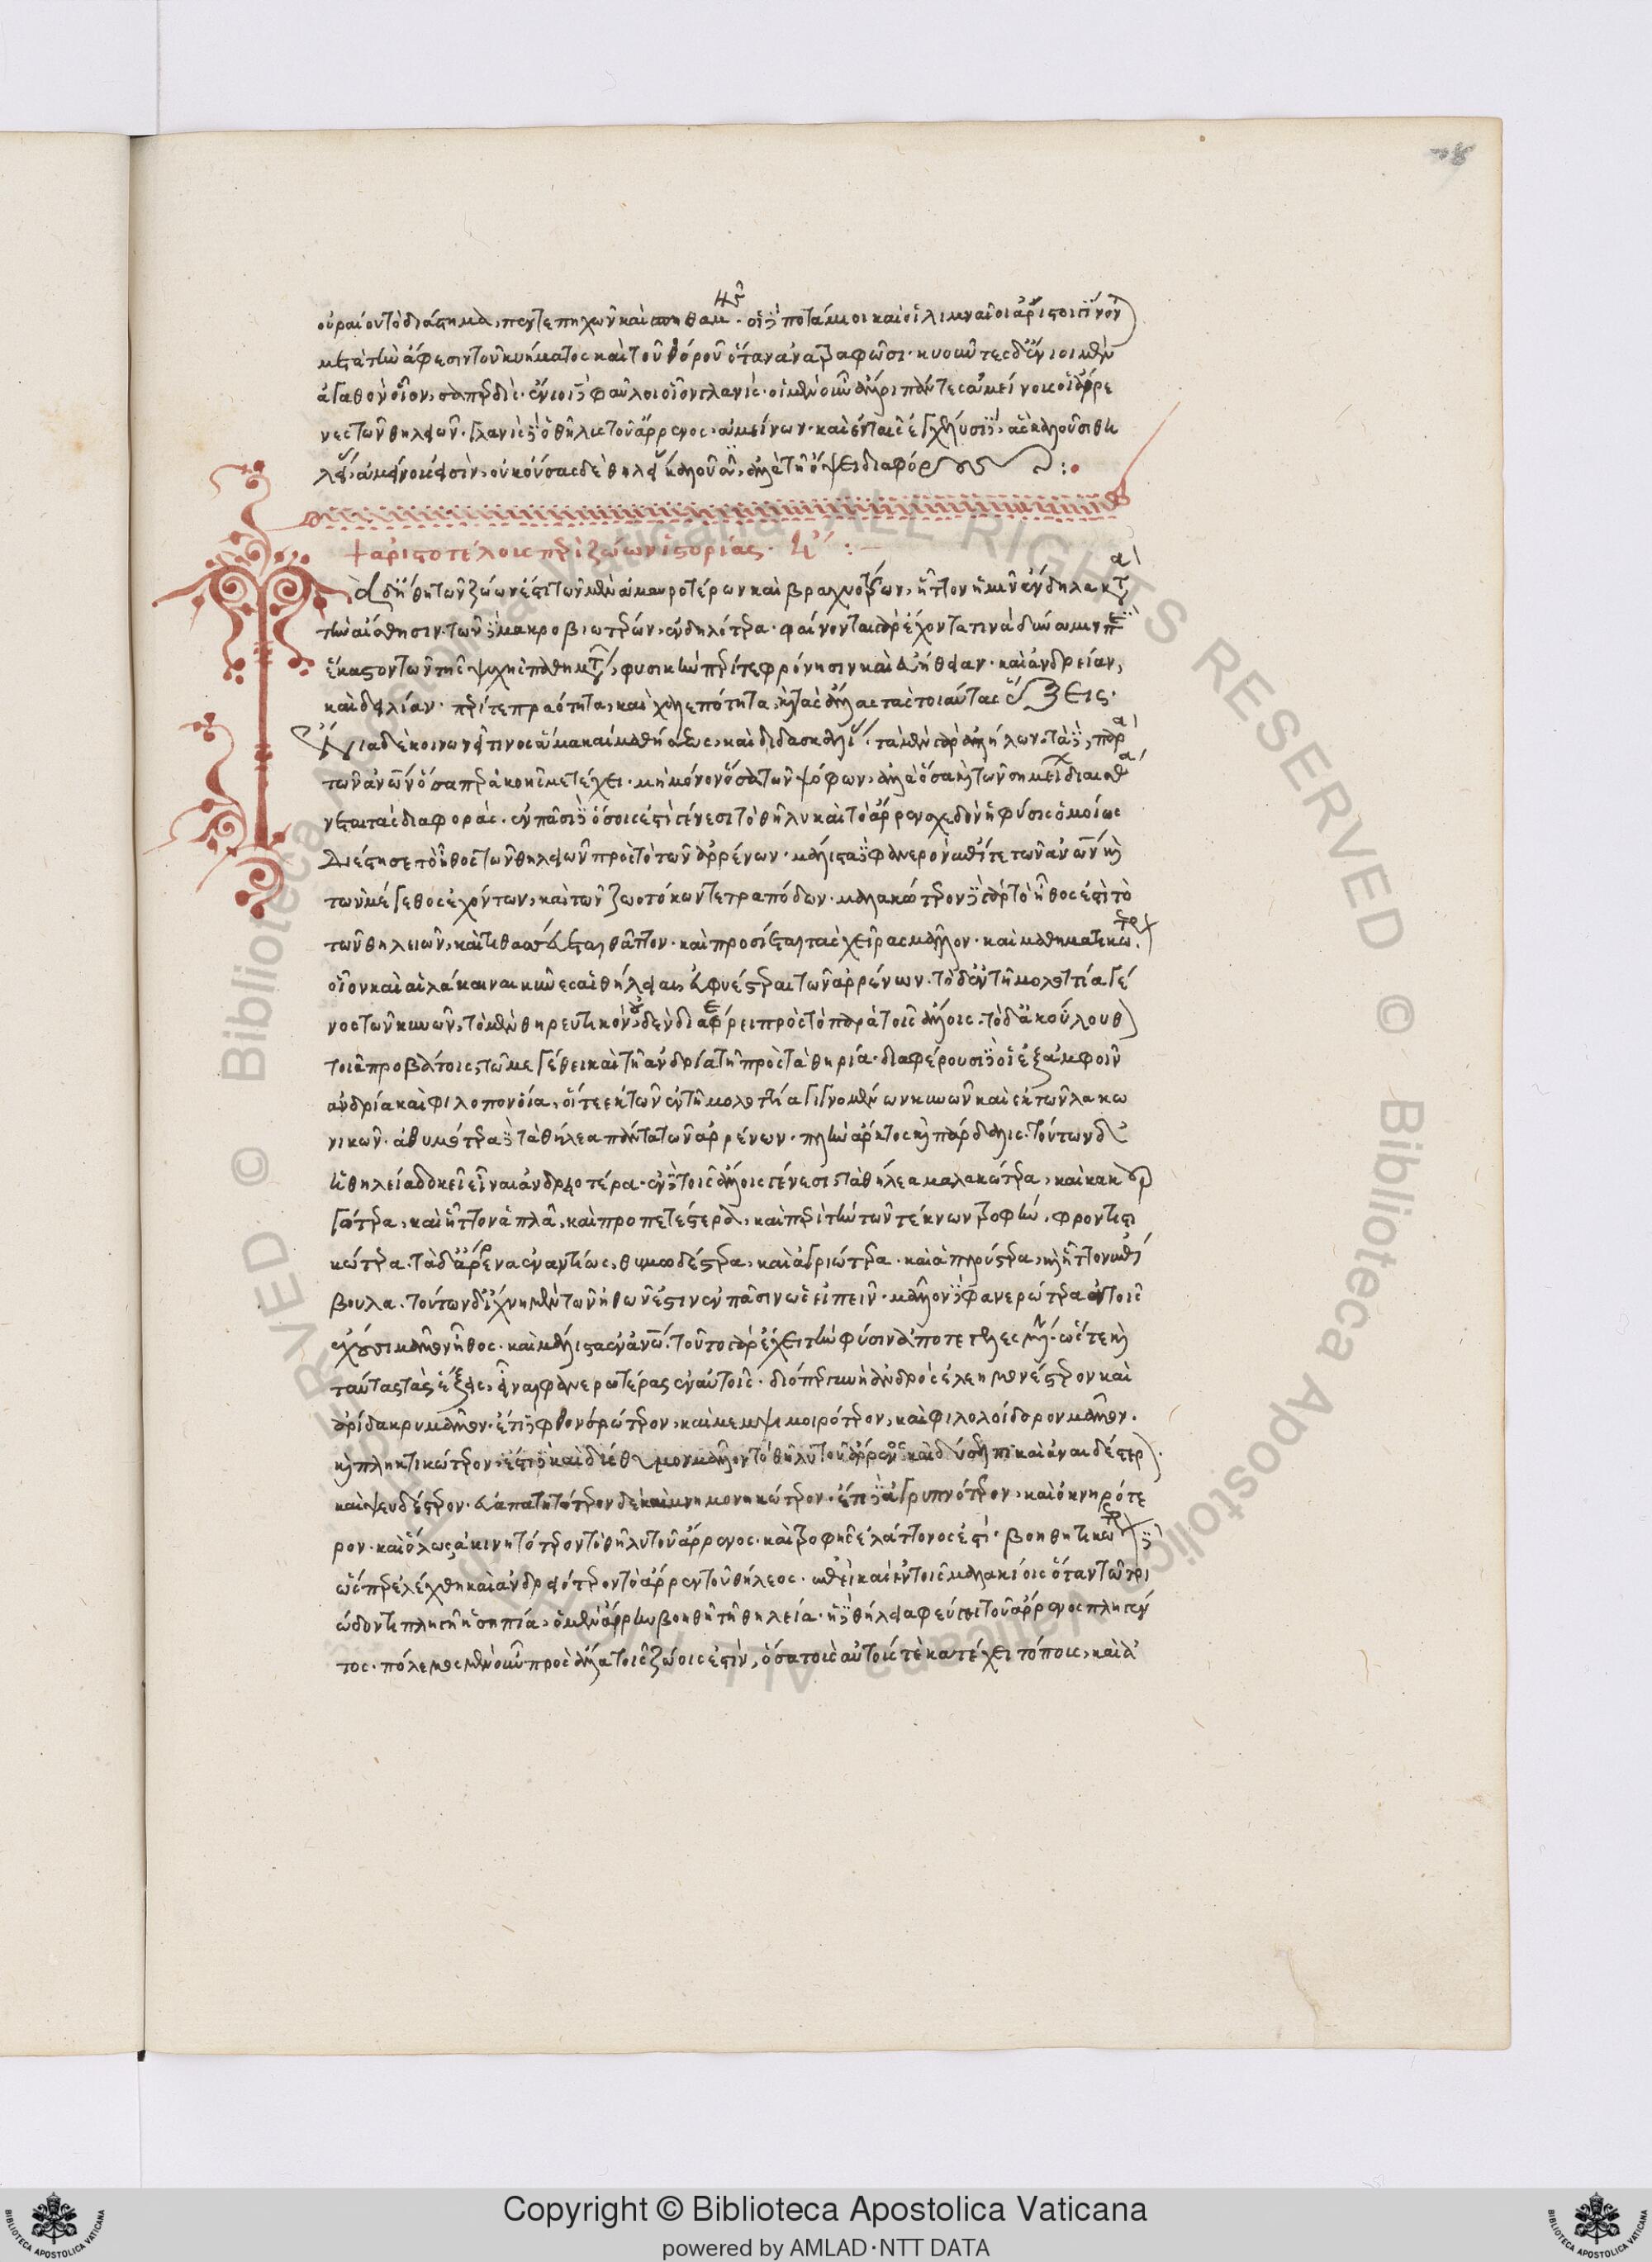 οὐραίου τὸ διάστημα, πέντε πηχῶν καὶ σπιθαμῆς. οἱ δὲ ποτάμιοι καὶ οἱ λιμναῖοι ἄριστοι γίνον
μετὰ τὴν ἄφεσιν τοῦ κυήματος καὶ τοῦ θοροῦ ὅταν ἀνατραφῶσι. κυοῦντες δ' ἔνιοι μὲν
ἀγαθοὶ οἷον, σαπερδίς. ἔνιοι δὲ φαῦλοι οἷον γλανίς. οἱ μὲν οὖν ἄλλοι πάντες ἀμείνους οἱ ἄρρε
νες τῶν θηλειῶν. γλανὶς δὲ ὁ θῆλυς τοῦ ἄρρενος, ἀμείνων. καὶ ἐν ταῖς ἐγχέλυσι δὲ, ἃς καλοῦσι θη
λείας, ἀμείνους εἰσὶν, οὐκ οὔσας δὲ θηλείας καλοῦσιν, ἀλλὰ τῇ ὄψει διαφόρους :
ἀριστοτέλους περὶ ζώων ἱστορίας.
Τὰ δ' ἤθη τῶν ζώων ἐστὶ τῶν μὲν ἀμαυροτέρων καὶ βραχυβίων, ἧττον ἡμῖν ἔνδηλα κατὰ
τὴν αἴσθησιν. τῶν δὲ μακροβιωτέρων, ἐνδηλότερα. φαίνονται γὰρ ἔχοντά τινα δύναμιν περὶ
ἕκαστον τῶν τῆς ψυχῆς παθημάτων, φυσικὴν περί τε φρόνησιν καὶ εὐήθειαν. καὶ ἀνδρείαν,
καὶ δειλίαν. περί τε πραότητα, καὶ χαλεπότητα, καὶ τὰς ἄλλας τὰς τοιαύτας ἕξεις.
Ἔνια δὲ κοινωνεῖ τινος ἅμα καὶ μαθήσεως, καὶ διδασκαλίας. τὰ μὲν παρ' ἀλλήλων. τὰ δὲ, παρὰ
τῶν ἀνθρώπων ὅσα περ ἀκοῆς μετέχει. μὴ μόνον ὅσα τῶν ψόφων, ἀλλὰ ὅσα καὶ τῶν σημείων διαισθά
νεται τὰς διαφοράς. ἐν πᾶσι δὲ ὅσοις ἐστὶ γένεσι τὸ θῆλυ καὶ τὸ ἄρρεν σχεδὸν ἡ φύσις ὁμοίως
διέστησε τὸ ἦθος τῶν θηλειῶν πρὸς τὸ τῶν ἀρρένων. μάλιστα δὲ φανερὸν ἐπί τε τῶν ἀνθρώπων καὶ
τῶν μέγεθος ἐχόντων, καὶ τῶν ζωοτόκων τετραπόδων. μαλακώτερον δὲ γὰρ τὸ ἦθος ἐστὶ τὸ
τῶν θηλειῶν, καὶ τιθασσεύεται θᾶττον. καὶ προσίεται τὰς χεῖρας μᾶλλον. καὶ μαθηματικώτερον.
οἷον καὶ αἱ λάκαιναι κύνες αἱ θήλειαι, εὐφυέστεραι τῶν ἀρρένων. τὸ δ' ἐν τῇ μολοττίᾳ γέ
νος τῶν κυνῶν, τὸ μὲν θηρευτικὸν, οὐδὲν διαφέρει πρὸς τὸ παρὰ τοῖς ἄλλοις. τὸ δ' ἀκόλουθον
τοῖς προβάτοις, τῷ μεγέθει καὶ τῇ ἀνδρίᾳ τῇ πρὸς τὰ θηρία. διαφέρουσι δὲ οἱ ἐξ ἀμφοῖν
ἀνδρίᾳ καὶ φιλοπονίᾳ, οἵ τε ἐκ τῶν ἐν τῇ μολοττίᾳ γιγνομένων κυνῶν καὶ ἐκ τῶν λακω
νικῶν. ἀθυμότερα δὲ τὰ θήλεα πάντα τῶν ἀρρένων. πλὴν ἄρκτος καὶ πάρδαλις. τούτων δ'
ἡ θήλεια δοκεῖ εἶναι ἀνδρειοτέρα. ἐν δὲ τοῖς ἄλλοις γένεσι τὰ θήλεα μαλακώτερα, καὶ κακουρ
γότερα, καὶ ἧττον ἁπλᾶ, καὶ προπετέστερα, καὶ περὶ τὴν τῶν τέκνων τροφὴν, φροντιστι
κώτερα. τὰ δ' ἄρρενα ἐναντίως, θυμωδέστερα, καὶ ἀγριώτερα. καὶ ἁπλούστερα, καὶ ἧττον ἐπί
βουλα. τούτων δ' ἴχνη μὲν τῶν ἠθῶν ἐστιν ἐν πᾶσιν ὡς εἰπεῖν. μᾶλλον δὲ φανερώτερα ἐν τοῖς
ἔχουσι μᾶλλον ἦθος. καὶ μάλιστα ἐν ἀνθρώπῳ. τοῦτο γὰρ ἔχει τὴν φύσιν ἀποτετελεσμένην. ὥστε καὶ
ταύτας τὰς ἕξεις, εἶναι φανερωτέρας ἐν αὐτοῖς. διόπερ γυνὴ ἀνδρὸς ἐλεημονέστερον καὶ
ἀρίδακρυ μᾶλλον. ἔτι δὲ φθονερώτερον, καὶ μεμψιμοιρότερον, καὶ φιλολοίδορον μᾶλλον.
καὶ πληκτικώτερον. ἔστι δὲ καὶ δύσθυμον μᾶλλον τὸ θῆλυ τοῦ ἄρρενος καὶ δύσελπι καὶ ἀναιδέστερον.
καὶ ψευδέστερον. εὐαπατητότερον δὲ καὶ μνημονικώτερον. ἔτι δὲ ἀγρυπνότερον, καὶ ὀκνηρότε
ρον. καὶ ὅλως ἀκινητότερον τὸ θῆλυ τοῦ ἄρρενος. καὶ τροφῆς ἐλάττονος ἐστί. βοηθητικώτερον δὲ
ὥσπερ ἐλέχθη καὶ ἀνδρειότερον τὸ ἄρρεν τοῦ θήλεος. ἐπεὶ καὶ ἐν τοῖς μαλακίοις ὅταν τῷ τρι
ώδοντι πληγῇ ἡ σηπία, ὁ μὲν ἄρρην βοηθεῖ τῇ θηλείᾳ. ἡ δὲ θήλεια φεύγει τοῦ ἄρρενος πληγέν
τος. πόλεμος μὲν οὖν πρὸς ἄλληλα τοῖς ζώοις ἐστὶν, ὅσα τοὺς αὐτούς τε κατέχει τόπους, καὶ ἀ
Copyright © Biblioteca Apostolica Vaticana
powered by AMLAD·NTT DATA